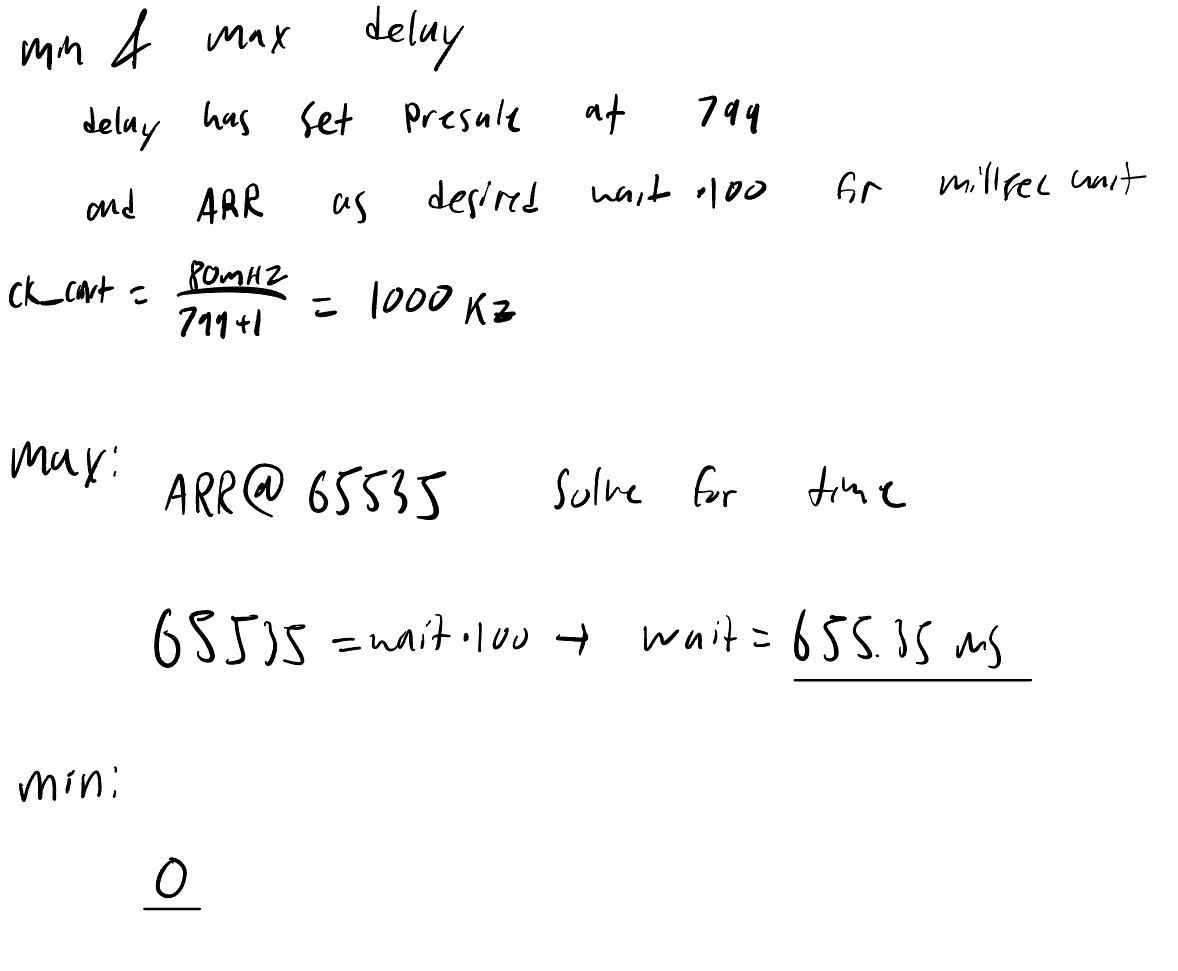 min & max delay
delay has set prescale at 799
and ARR as desired wait ·100 for millisec unit
ck_cnt = 80MHZ / 799+1 = 1000 Kz
max: ARR@ 65535 solve for time
65535 = wait·100 → wait = 655.35 ms
min:
0